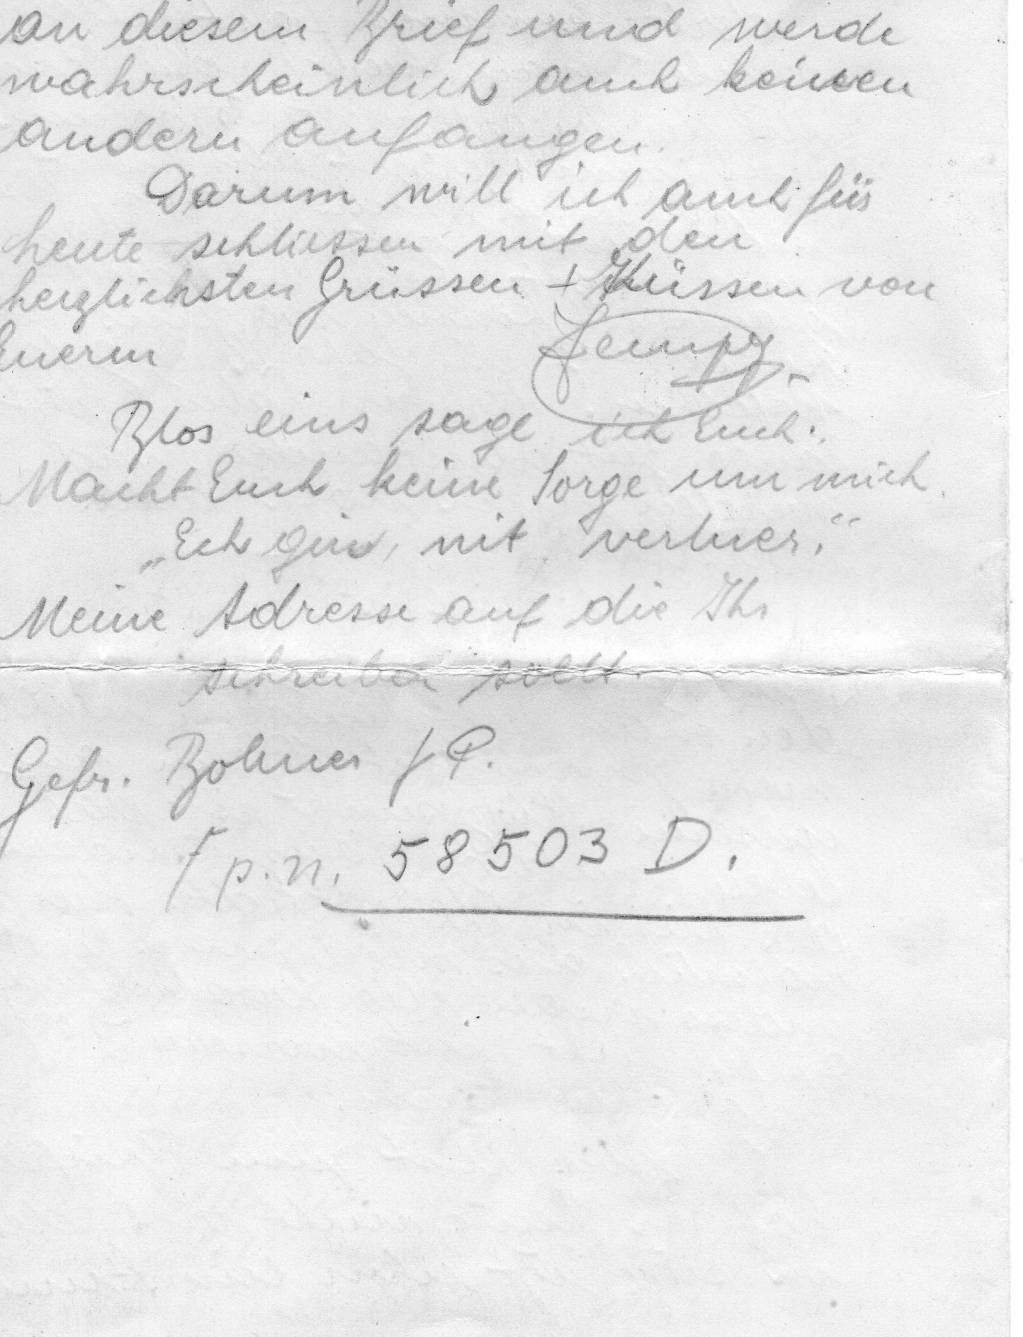 an diesem Brief und werde
wahrscheinlich auch keinen
andern anfangen.
Darum will ich auch für
heute schliessen mit den
herzlichsten Grüssen + Küssen von
Euerm Jempy.
Blos eins sage ich Euch:
Macht Euch keine Sorge um mich.
„Ech gin, nit verluer."
Meine Adresse auf die Ihr
schreiben sollt.
Gefr. Bohner J P.
f p.n. 58503 D.